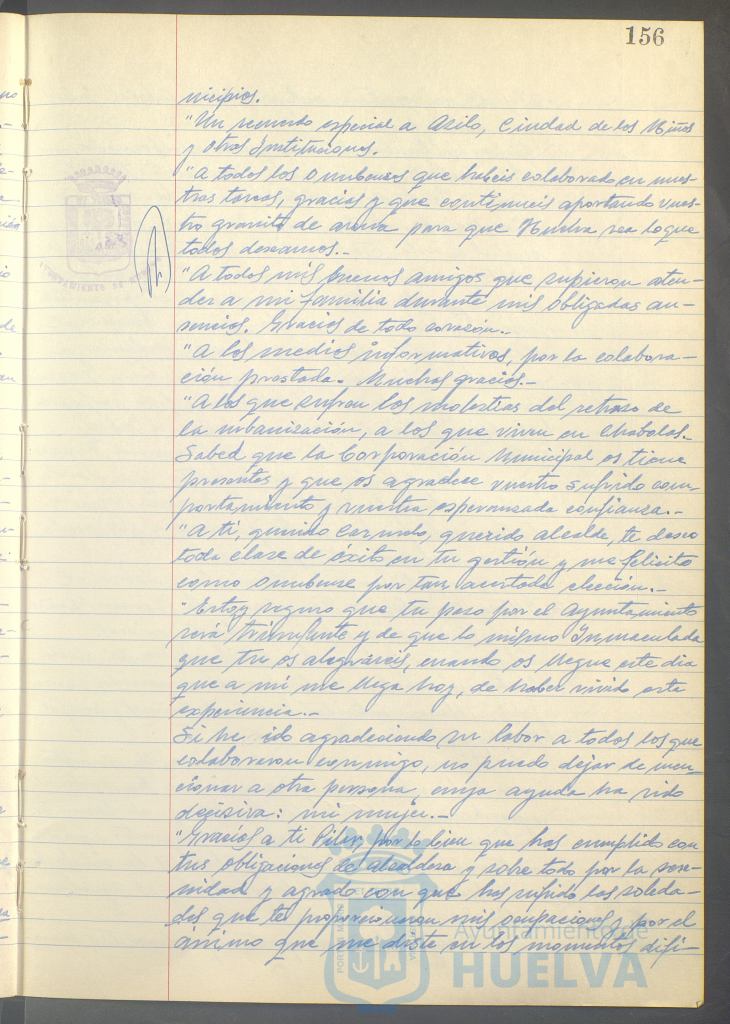 156
nicipios.
"Un recuerdo especial a Asilo, Ciudad de los Niños
y otras Instituciones.
"A todos los onubenses que habeis colaborado en nues-
tras tareas, gracias y que continueis aportando vues-
tro granito de arena para que Huelva sea lo que
todos deseamos.-
"A todos mis buenos amigos que supieron aten-
der a mi familia durante mis obligadas au-
sencias. Gracias de todo corazón.-
"A los medios informativos, por la colabora-
ción prestada. Muchas gracias.-
"A los que sufren las molestias del retraso de
la urbanización, a los que viven en chabolas.-
Sabed que la Corporación Municipal os tiene
presentes y que os agradece vuestro sufrido com-
portamiento y vuestra esperanzada confianza.-
"A ti, querido Carmelo, querido alcalde, te deseo
toda clase de éxito en tu gestión y me felicito
como onubense por tan acertada elección.-
"Estoy seguro que tu paso por el Ayuntamiento
será triunfante y de que lo mismo Inmaculada
que tu os alegráreis, cuando os llegue este dia
que a mi me llega hoy, de haber vivido esta
experiencia.-
Si he ido agradeciendo su labor a todos los que
colaboraron conmigo, no puedo dejar de men-
cionar a otra persona, cuya ayuda ha sido
decisiva: mi mujer.-
"Gracias a ti Pilar, por lo bien que has cumplido con
tus obligaciones de alcaldesa y sobre todo por la sere-
nidad y agrado con que has sufrido las soleda-
des que te proporcionaron mis ocupaciones y por el
ánimo que me diste en los momentos difí-
Ayuntamiento de
HUELVA